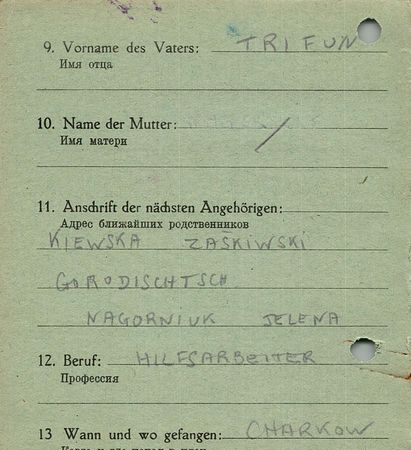 9. Vorname des Vaters: TRIFUN
Имя отца
10. Name der Mutter: /
Имя матери
11. Anschrift der nächsten Angehörigen:
Адрес ближайших родственников
KIEWSKA ZAŠKIWSKI
GORODISCHTSCH
NAGORNIUK JELENA
12. Beruf: HILFSARBEITER
Профессия
13 Wann und wo gefangen: CHARKOW